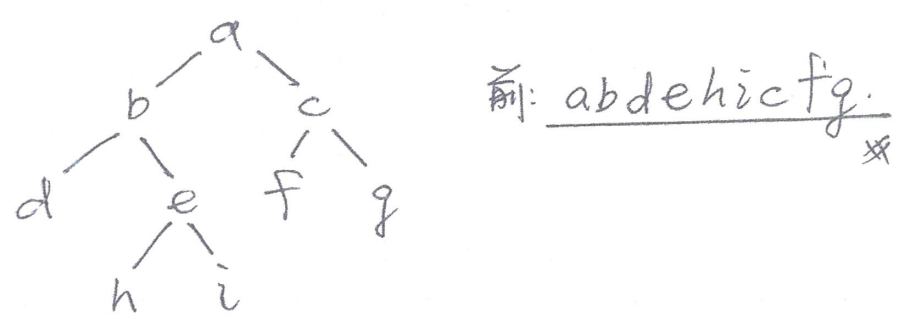 a
b c
d e f g
h i
前: abdehicfg.